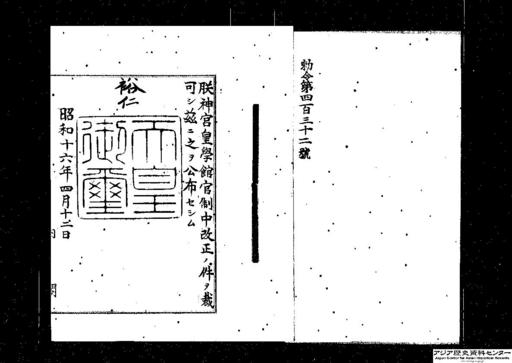 勅令第四百三十二號
朕神宮皇學館官制中改正ノ件ヲ裁
可シ茲ニ之ヲ公布セシム
裕仁
天皇
御璽
昭和十六年四月十二日
アジア歴史資料センター
Japan Center for Asian Historical Records